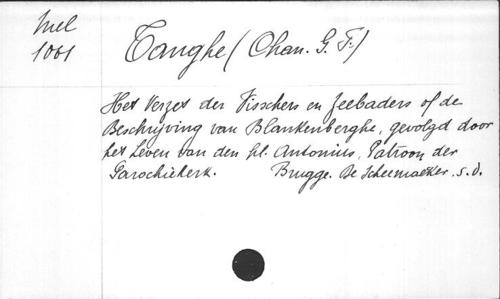 Mel
1001
Tanghe (Chan. G. F.)
Het Verzet der Visschers en Zeebaders of de
Beschrijving van Blankenberghe, gevolgd door
het Leven van den hl. Antonius, Patroon der
Parochiekerk. Brugge. De Scheemaecker, s.d.